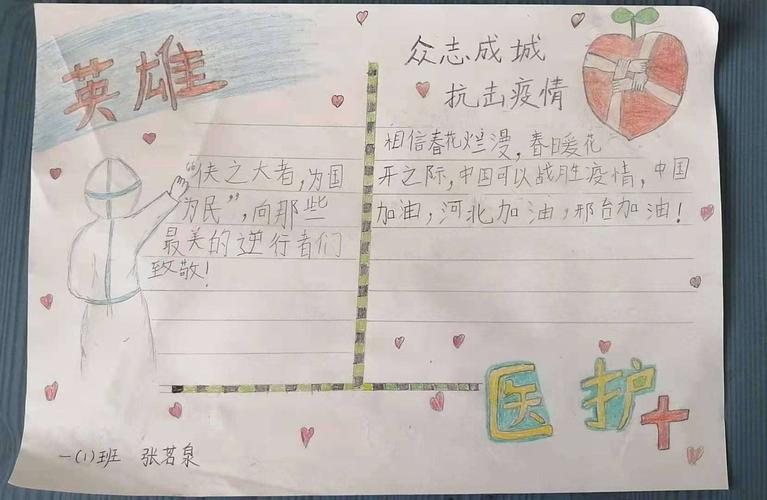 英雄
众志成城
抗击疫情
“侠之大者，为国
为民”，向那些
最美的逆行者们
致敬！
相信春花烂漫，春日暖花
开之际，中国可以战胜疫情，中国
加油，河北加油，邢台加油！
医护
一(1)班 张茗泉